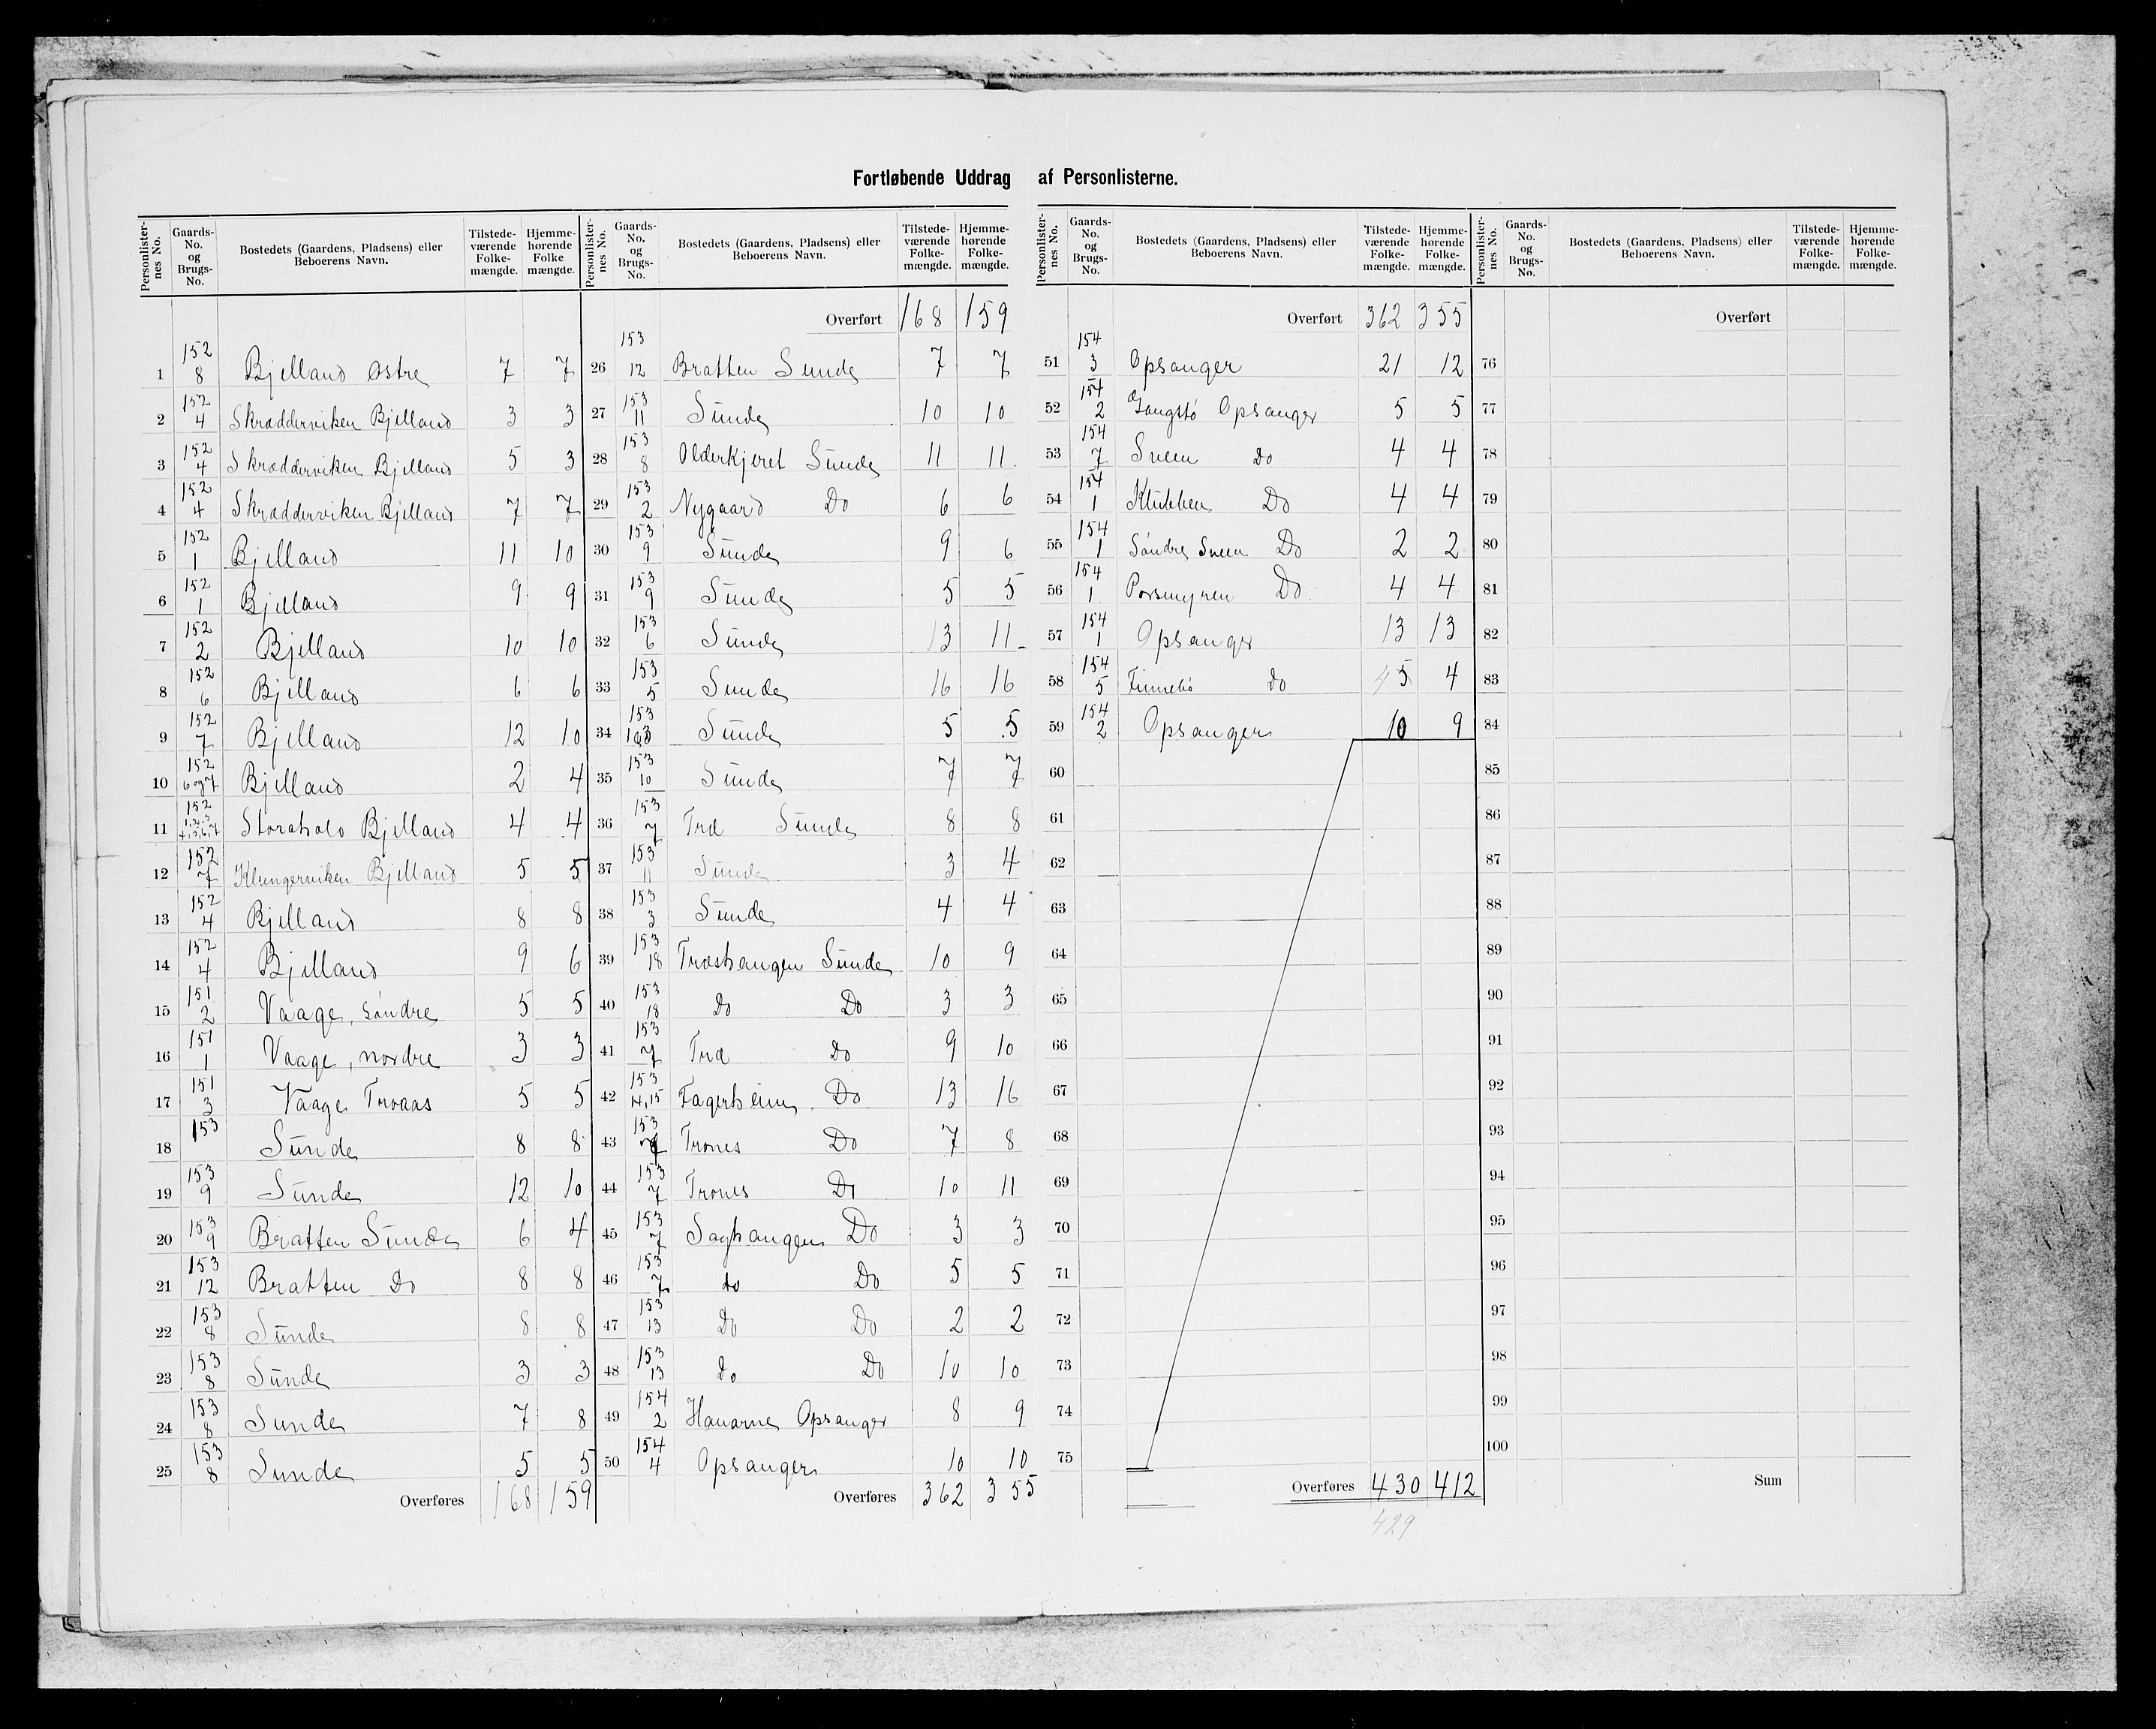 Fortløbende Uddrag af Personlisterne.
Personlisternes No. | Gaards-No. og Brugs-No. | Bostedets (Gaardens, Pladsens) eller Beboerens Navn. | Tilstedeværende Folkemængde. | Hjemmehørende Folkemængde.
1 | 152 8 | Bjelland østre | 7 | 7
2 | 152 4 | Skrædderviken Bjelland | 3 | 3
3 | 152 4 | Skrædderviken Bjelland | 5 | 3
4 | 152 4 | Skrædderviken Bjelland | 7 | 7
5 | 152 1 | Bjelland | 11 | 10
6 | 152 1 | Bjelland | 9 | 9
7 | 152 2 | Bjelland | 10 | 10
8 | 152 6 | Bjelland | 6 | 6
9 | 152 7 | Bjelland | 12 | 10
10 | 152 6 og 7 | Bjelland | 2 | 4
11 | 152 1,2,3,4,5,6,7 | Storahola Bjelland | 4 | 4
12 | 152 7 | Klungerviken Bjelland | 5 | 5
13 | 152 4 | Bjelland | 8 | 8
14 | 152 4 | Bjelland | 9 | 6
15 | 151 2 | Vaage, søndre | 5 | 5
16 | 151 1 | Vaage, nordre | 3 | 3
17 | 151 3 | Vaage Traaas | 5 | 5
18 | 153 | Sunde | 8 | 8
19 | 153 9 | Sunde | 12 | 10
20 | 153 9 | Bratten Sunde | 6 | 4
21 | 153 12 | Bratten Do | 8 | 8
22 | 153 8 | Sunde | 8 | 8
23 | 153 8 | Sunde | 3 | 3
24 | 153 8 | Sunde | 7 | 8
25 | 153 8 | Sunde | 5 | 5
Overføres 168 159
Personlisternes No. | Gaards-No. og Brugs-No. | Bostedets (Gaardens, Pladsens) eller Beboerens Navn. | Tilstedeværende Folkemængde. | Hjemmehørende Folkemængde.
Overført 168 159
26 | 153 12 | Bratten Sunde | 7 | 7
27 | 153 11 | Sunde | 10 | 10
28 | 153 8 | Olderkjeret Sunde | 11 | 11
29 | 153 2 | Nygaard Do | 6 | 6
30 | 153 9 | Sunde | 9 | 6
31 | 153 9 | Sunde | 5 | 5
32 | 153 6 | Sunde | 13 | 11
33 | 153 5 | Sunde | 16 | 16
34 | 153 1&3 | Sunde | 5 | 5
35 | 153 10 | Sunde | 7 | 7
36 | 153 7 | Træ Sunde | 8 | 8
37 | 153 11 | Sunde | 3 | 4
38 | 153 3 | Sunde | 4 | 4
39 | 153 18 | Træshaugen Sunde | 10 | 9
40 | 153 18 | Do Do | 3 | 3
41 | 153 7 | Træ Do | 9 | 10
42 | 153 14,15 | Fagerheim Do | 13 | 16
43 | 153 7 | Trones Do | 7 | 8
44 | 153 7 | Trones Do | 10 | 11
45 | 153 7 | Saghaugen Do | 3 | 3
46 | 153 7 | do Do | 5 | 5
47 | 153 13 | Do Do | 2 | 2
48 | 153 13 | do Do | 10 | 10
49 | 154 2 | Hauarne Opsanger | 8 | 9
50 | 154 4 | Opsanger | 10 | 10
Overføres 362 355
Personlisternes No. | Gaards-No. og Brugs-No. | Bostedets (Gaardens, Pladsens) eller Beboerens Navn. | Tilstedeværende Folkemængde. | Hjemmehørende Folkemængde.
Overført 362 355
51 | 154 3 | Opsanger | 21 | 12
52 | 154 2 | Gangstø Opsanger | 5 | 5
53 | 154 7 | Sneen do | 4 | 4
54 | 154 1 | Klubben Do | 4 | 4
55 | 154 1 | Søndre Sneen Do | 2 | 2
56 | 154 1 | Porsmyren Do | 4 | 4
57 | 154 1 | Opsanger | 13 | 13
58 | 154 5 | Finnebø do | 4 5 | 4
59 | 154 2 | Opsanger | 10 | 9
60
61
62
63
64
65
66
67
68
69
70
71
72
73
74
75
Overføres 430 412
429
Personlisternes No. | Gaards-No. og Brugs-No. | Bostedets (Gaardens, Pladsens) eller Beboerens Navn. | Tilstedeværende Folkemængde. | Hjemmehørende Folkemængde.
Overført
76
77
78
79
80
81
82
83
84
85
86
87
88
89
90
91
92
93
94
95
96
97
98
99
100
Sum